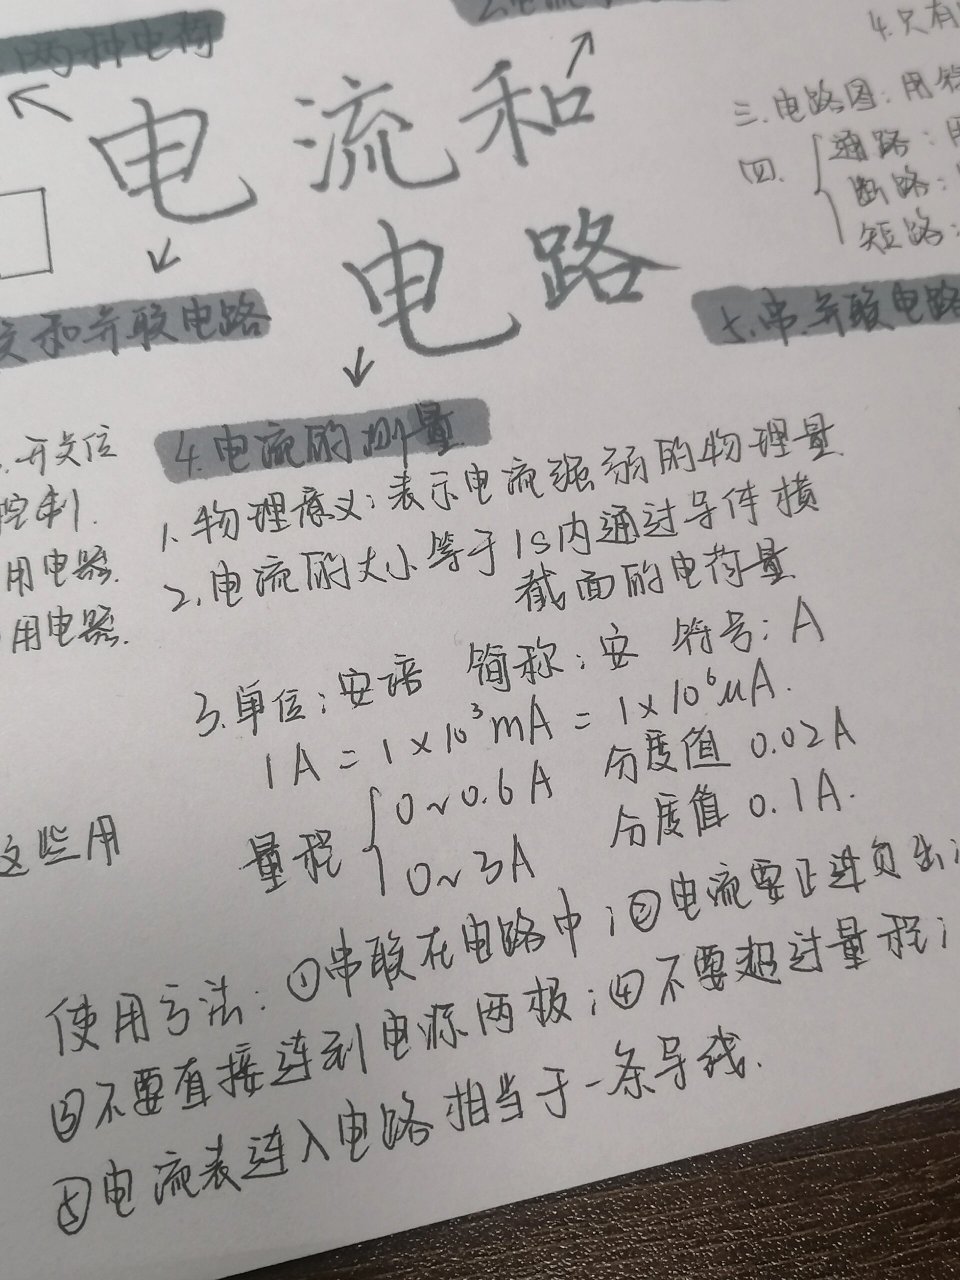 两种电荷
2.电流
电流和
电路
4.只有
三.电路图:用
四.
通路:用
断路:
短路:
和并联电路
5.串并联电路
.开关位
控制.
用电器.
用电器.
这些用
4.电流的测量
1.物理意义:表示电流强弱的物理量
2.电流的大小等于1s内通过导体横
截面的电荷量
3.单位:安培 简称:安 符号:A
1A=1×10³mA=1×10⁶μA.
量程
0~0.6A 分度值 0.02A
0~3A 分度值 0.1A.
使用方法:①串联在电路中;②电流要正进负出;
③不要直接连到电源两极;④不要超过量程;
⑤电流表连入电路相当于一条导线.